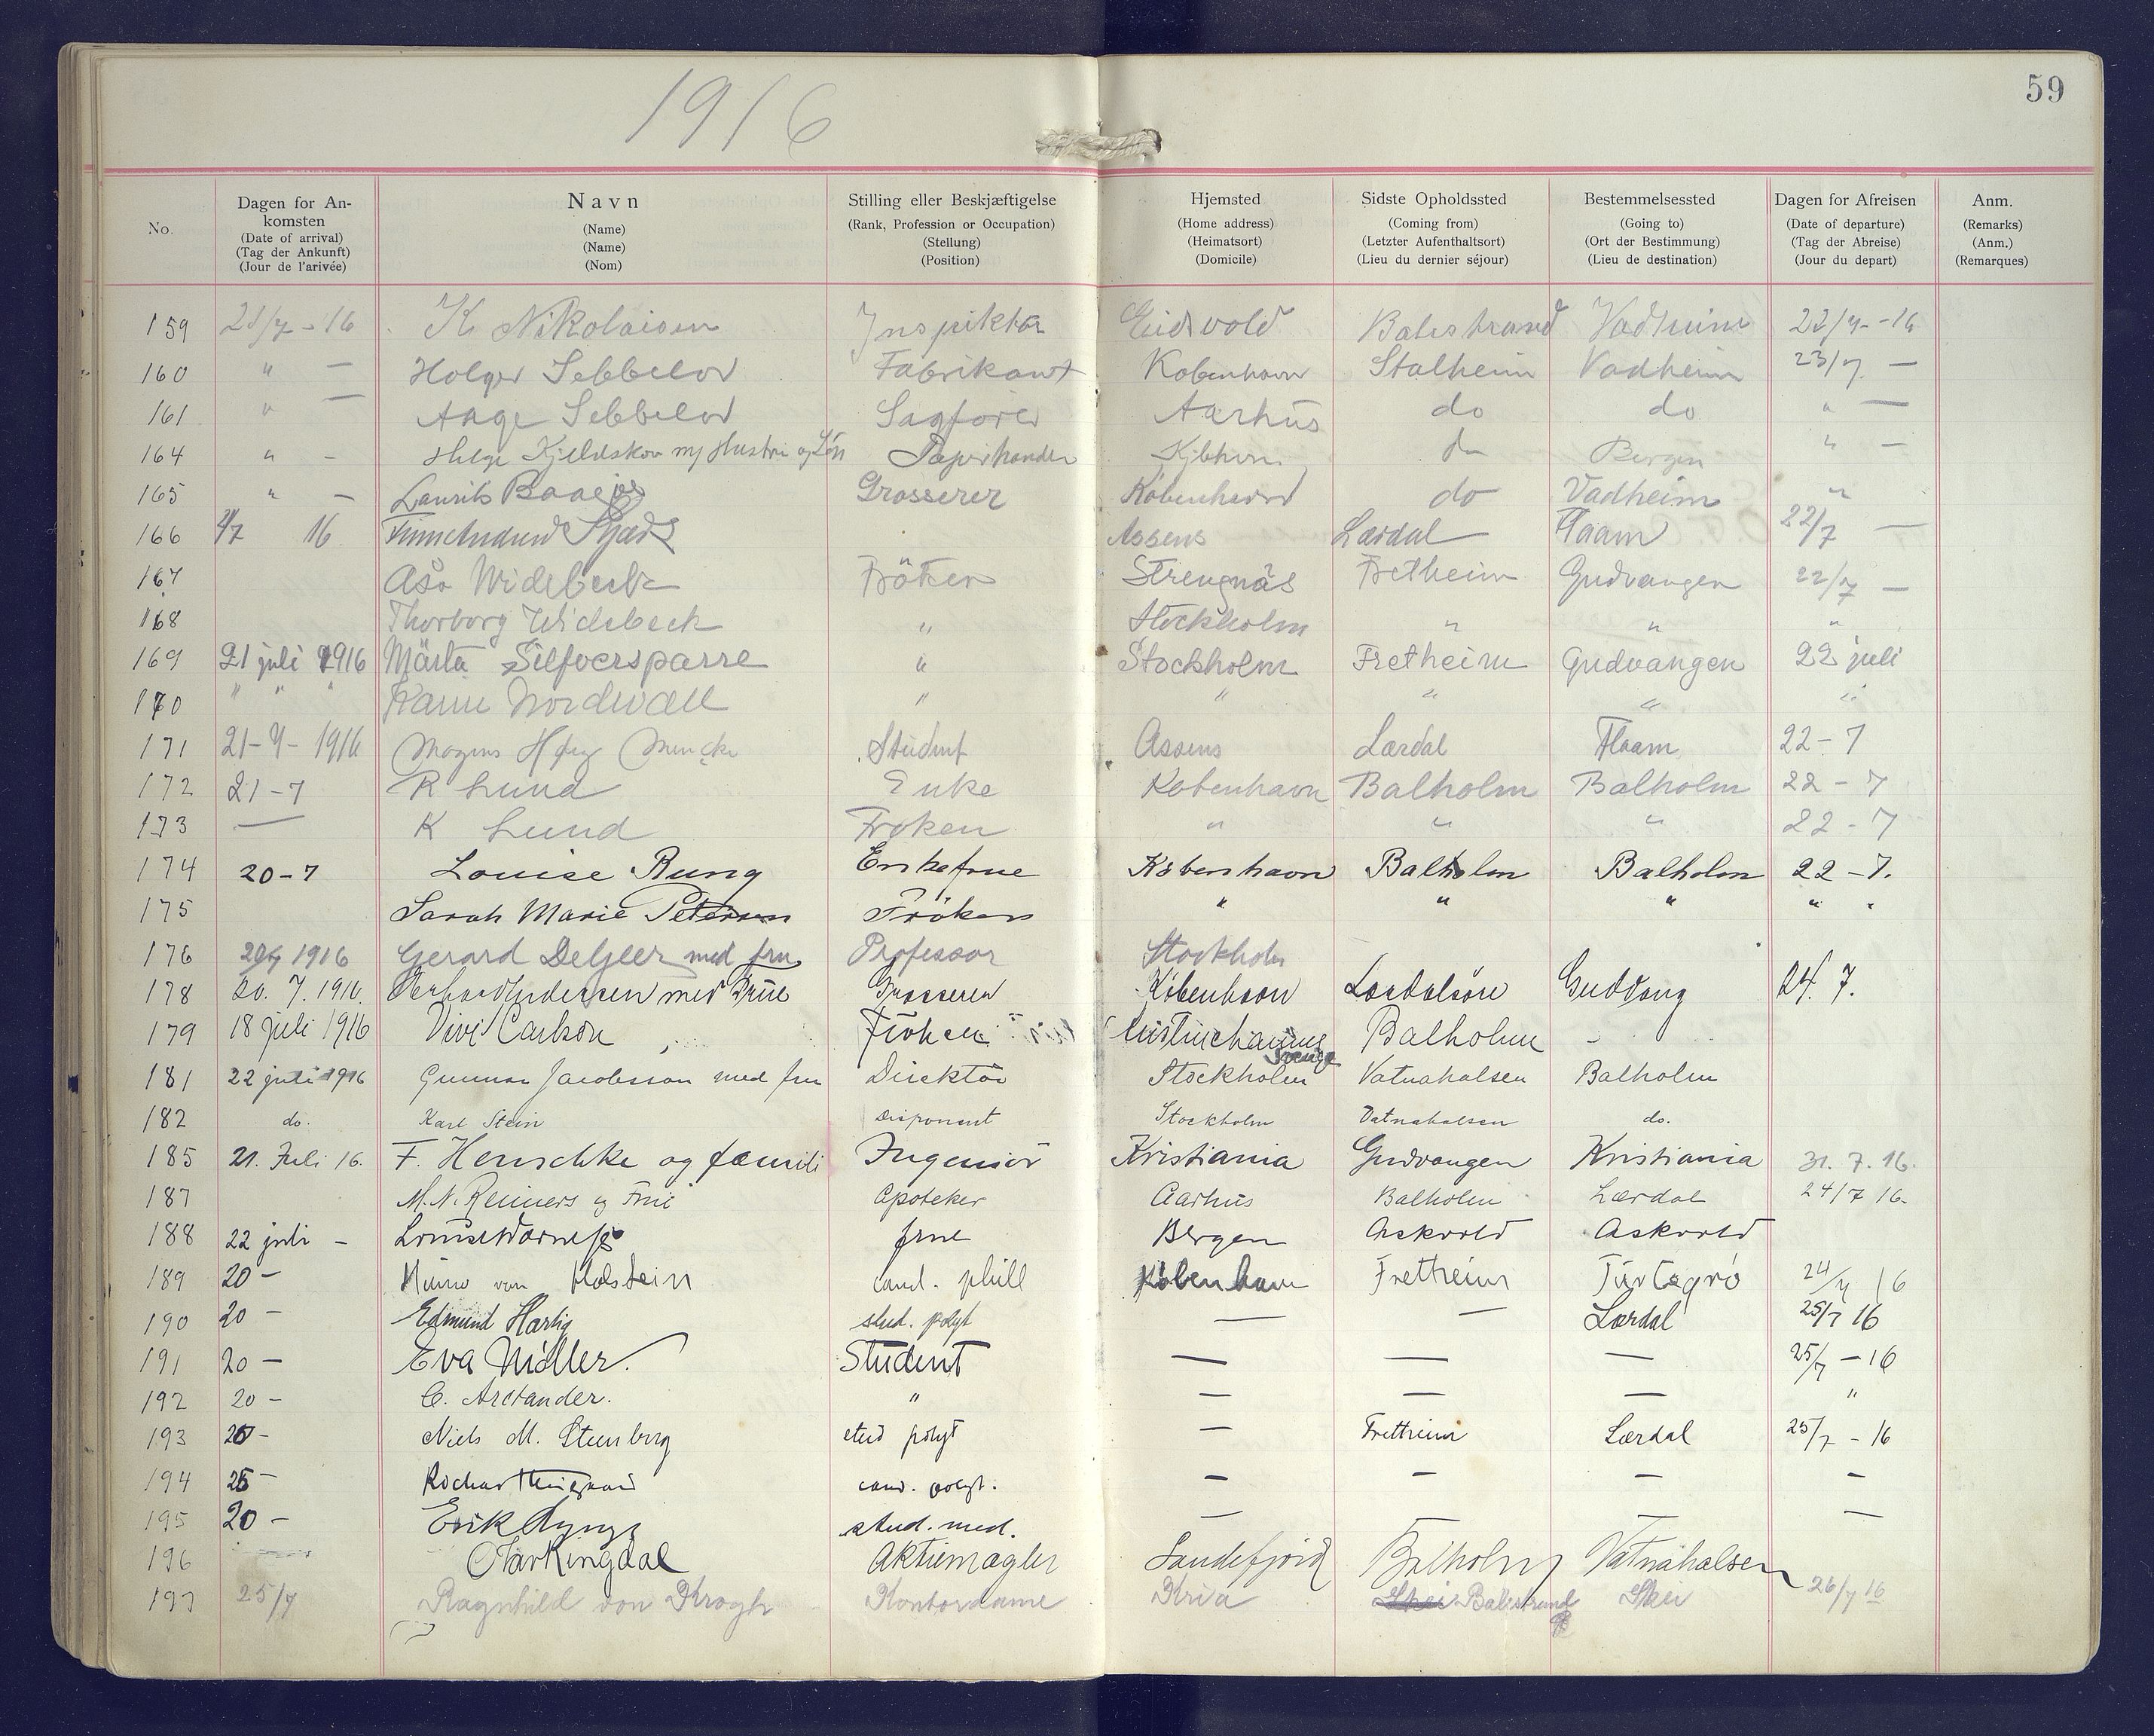 1916
59
No. Dagen for Ankomsten (Date of arrival) (Tag der Ankunft) (Jour de l'arivée) Navn (Name) (Name) (Nom) Stilling eller Beskjæftigelse (Rank, Profession or Occupation) (Stellung) (Position) Hjemsted (Home address) (Heimatsort) (Domicile) Sidste Opholdssted (Coming from) (Letzter Aufenthaltsort) (Lieu du dernier séjour) Bestemmelsessted (Going to) (Ort der Bestimmung) (Lieu de destination) Dagen for Afreisen (Date of departure) (Tag der Abreise) (Jour du depart) Anm. (Remarks) (Anm.) (Remarques)
159 21/7 - 16 K. Nikolaisen Inspektør Eidsvold Balestrand Vadheim 22/7 - 16
160 " — Holger Sebbelov Fabrikant København Stalheim Vadheim 23/7 —
161 " — Aage Sebbelov Sagfører Aarhus do do " —
164 " - Helge Kjeldskov m/ Hustru og Søn Papirhandler Kjbhvn do Bergen " —
165 " — Laurits Grosserer København do Vadheim "
166 /7 16 Assens Lærdal Flaam 22/7 —
167 Åsa Widebeck Fröken Strengnäs Fretheim Gudvangen 22/7 —
168 Thorborg Widebeck " Stockholm " " "
169 21 juli 1916 Märta Silfversparre " Stockholm Fretheim Gudvangen 22 juli
170 " " " Karin Nordwall " " " " "
171 21-7-1916 Mogens Høeg Student Assens Lærdal Flaam 22-7
172 21-7 R Lund Enke København Balholm Balholm 22-7
173 — K Lund Frøken " " " 22-7
174 20-7 Louise Rung Enkefrue København Balholm Balholm 22-7.
175 Sarah Marie Petersen Fröken " " " " "
176 20/7 1916 Gerard DeGeer med fru Professor Stockholm
178 20. 7. 1916. Gerhard Andersen med Frue Grosserer København Lærdalsøre Gudvang 24. 7.
179 18 juli 1916 Vivi Carlson Fröken Kristinehamn Sverige Balholm -
181 22 juli 1916 Gunnar Jacobsson med fru Direktör Stockholm Vatnahalsen Balholm
182 do. Karl Stein Disponent Stockholm Vatnahalsen do.
185 21. Juli 16. F. Henschke og familie Ingeniør Kristiania Gudvangen Kristiania 31. 7. 16.
187 M. N. Reimers og Frue Apoteker Aarhus Balholm Lærdal 24/7 16.
188 22 juli - Louise frue Bergen Askvold Askvold
189 20 - von Holstein cand. phill København Fretheim Turtegrø 24/7 16
190 20 - Edmund Hartig stud. polyt — — Lærdal 25/7 16
191 20 — Eva Møller. Student — — — 25/7 - 16
192 20 - C. Arctander. " — — — "
193 20 - Niels M. Steenberg stud polyt — Frettheim Lærdal 25/7 - 16
194 25 - cand. polyt. — — — -
195 20 - Erik stud. med. — — —
196 Olav Ringdal Aktiemægler Sandefjord Balholm Vatnahalsen
197 25/7 Ragnhild von Krogh Kontordame Kria Skei Balestrand Skei 26/7 16